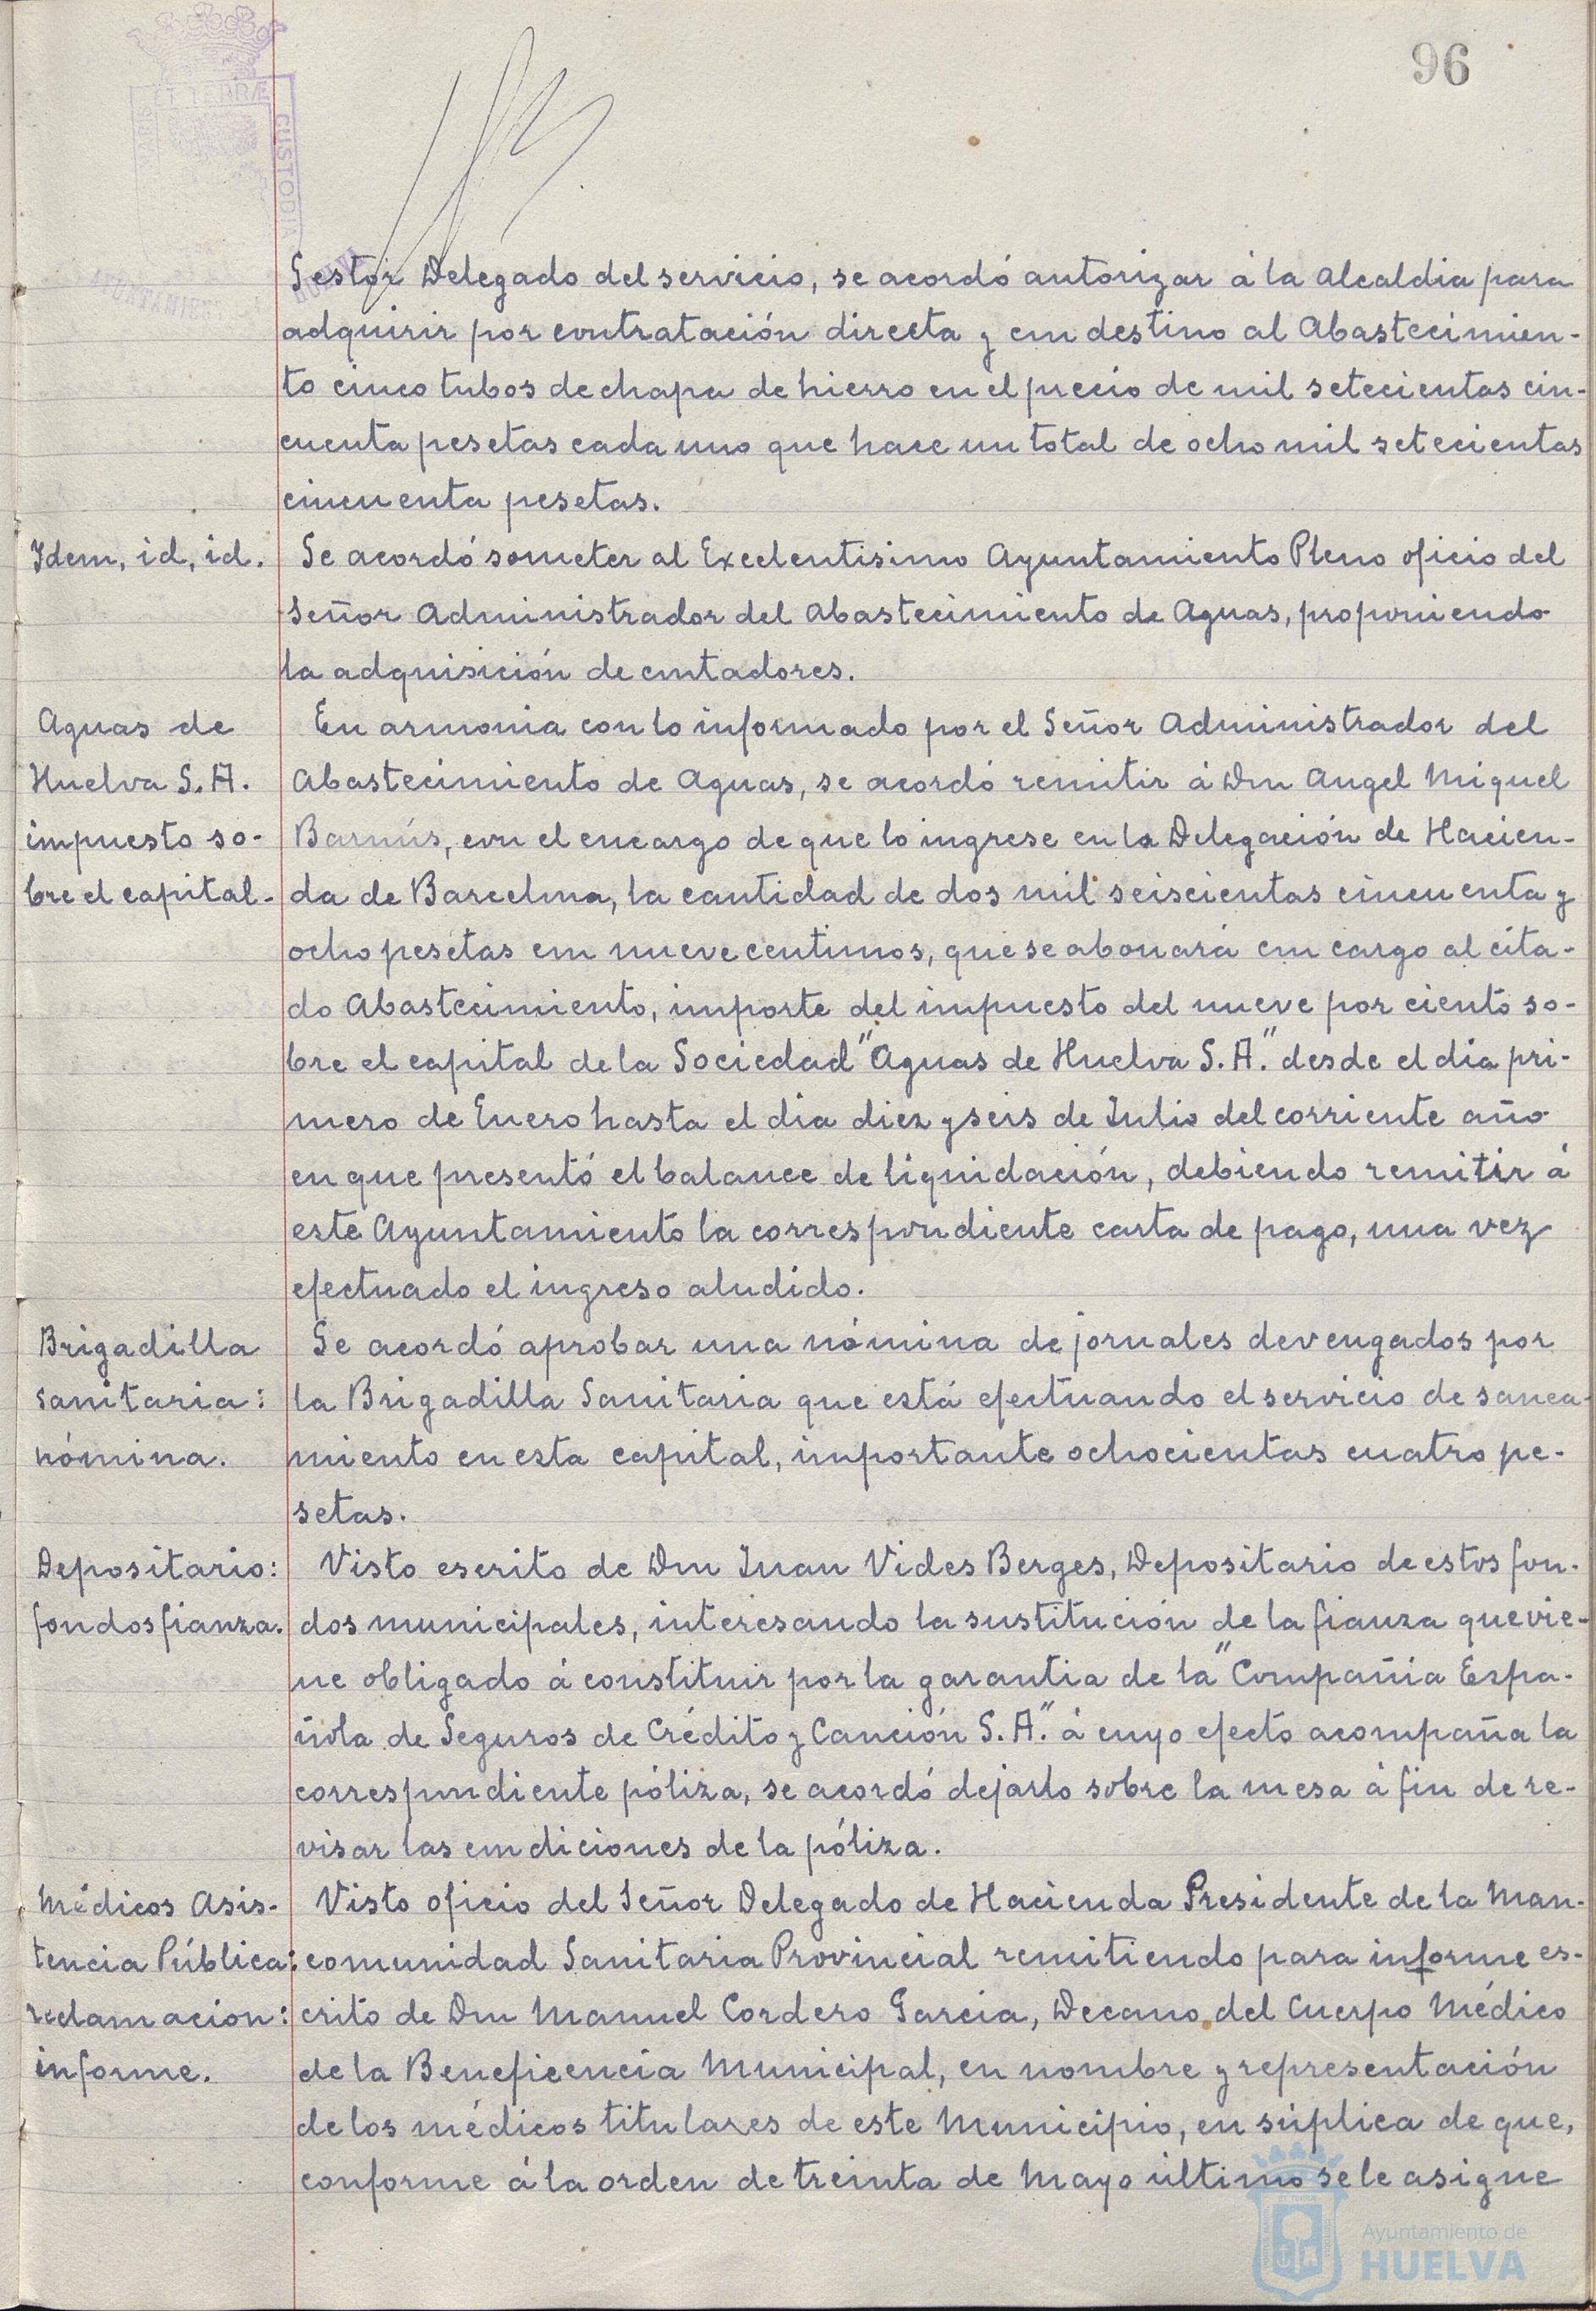 96
ET TERRÆ
CUSTODIA
Gestor Delegado del servicio, se acordó autorizar á la Alcaldia para
adquirir por contratación directa y con destino al Abastecimien-
to cinco tubos de chapa de hierro en el precio de mil setecientas cin-
cuenta pesetas cada uno que hace un total de ocho mil setecientas
cincuenta pesetas.
Idem, id, id.
Se acordó someter al Excelentisimo Ayuntamiento Pleno oficio del
Señor Administrador del Abastecimiento de Aguas, proponiendo
la adquisición de contadores.
Aguas de
Huelva S. A.
impuesto so-
bre el capital-
En armonia con lo informado por el Señor Administrador del
Abastecimiento de Aguas, se acordó remitir á Don Angel Miguel
Barnús, con el encargo de que lo ingrese en la Delegación de Hacien-
da de Barcelona, la cantidad de dos mil seiscientas cincuenta y
ocho pesetas con nueve centimos, que se abonará con cargo al cita-
do Abastecimiento, importe del impuesto del nueve por ciento so-
bre el capital de la Sociedad "Aguas de Huelva S. A." desde el dia pri-
mero de Enero hasta el dia diez y seis de Julio del corriente año
en que presentó el balance de liquidación, debiendo remitir á
este Ayuntamiento la correspondiente carta de pago, una vez
efectuado el ingreso aludido.
Brigadilla
sanitaria:
nómina.
Se acordó aprobar una nómina de jornales devengados por
la Brigadilla Sanitaria que está efectuando el servicio de sanea-
miento en esta capital, importante ochocientas cuatro pe-
setas.
Depositario:
fondos fianza.
Visto escrito de Don Juan Vides Berges, Depositario de estos fon-
dos municipales, interesando la sustitución de la fianza que vie-
ne obligado á constituir por la garantia de la "Compañia Espa-
ñola de Seguros de Crédito y Caución S. A." á cuyo efecto acompaña la
correspondiente póliza, se acordó dejarlo sobre la mesa á fin de re-
visar las condiciones de la póliza.
Médicos Asis-
tencia Pública:
reclamacion:
informe.
Visto oficio del Señor Delegado de Hacienda Presidente de la Man-
comunidad Sanitaria Provincial remitiendo para informe es-
crito de Don Manuel Cordero Garcia, Decano del Cuerpo Médico
de la Beneficencia Municipal, en nombre y representación
de los médicos titulares de este Municipio, en súplica de que,
conforme á la orden de treinta de Mayo último se le asigne
Ayuntamiento de
HUELVA